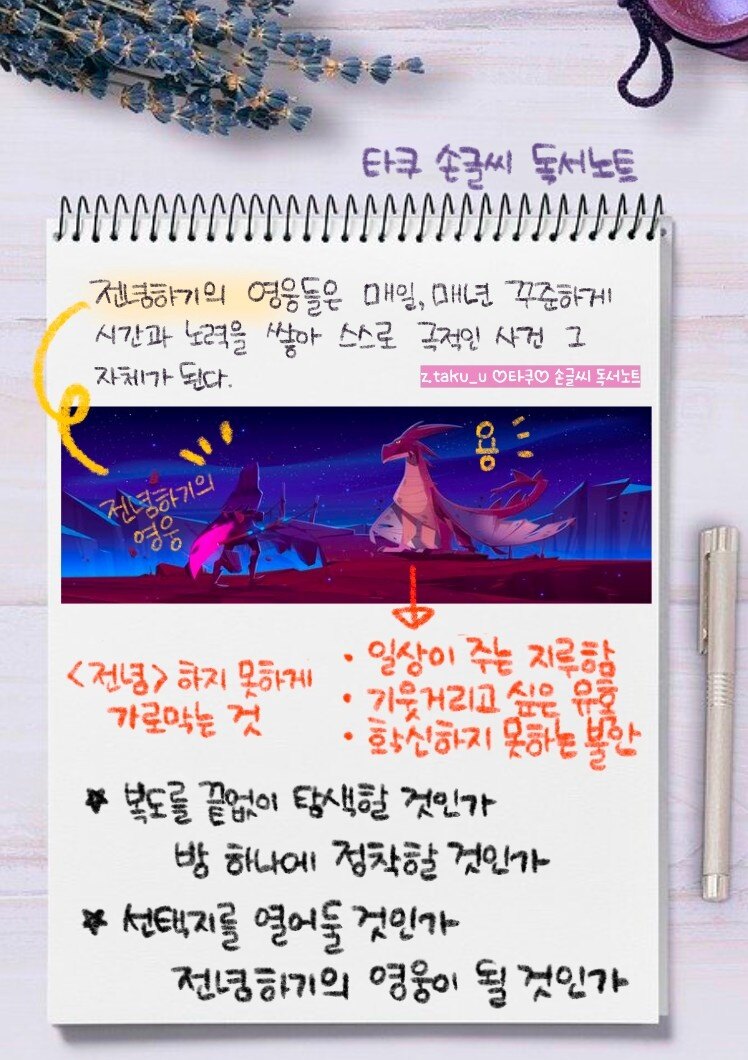 타쿠 손글씨 독서노트
전념하기의 영웅들은 매일, 매년 꾸준하게
시간과 노력을 쌓아 스스로 극적인 사건 그
자체가 된다.
z.taku_u ♡타쿠♡ 손글씨 독서노트
용
전념하기의
영웅
<전념> 하지 못하게
가로막는 것
• 일상이 주는 지루함
• 기웃거리고 싶은 유혹
• 확신하지 못하는 불안
★ 복도를 끝없이 탐색할 것인가
방 하나에 정착할 것인가
★ 선택지를 열어둘 것인가
전념하기의 영웅이 될 것인가